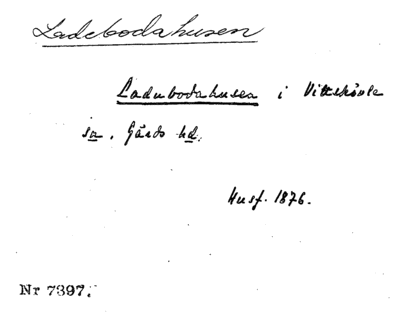 Ladebodahusen
Ladubodahusen i Vittskövle
sn, Gärds hd.
Husf. 1876.
Nr 7397.